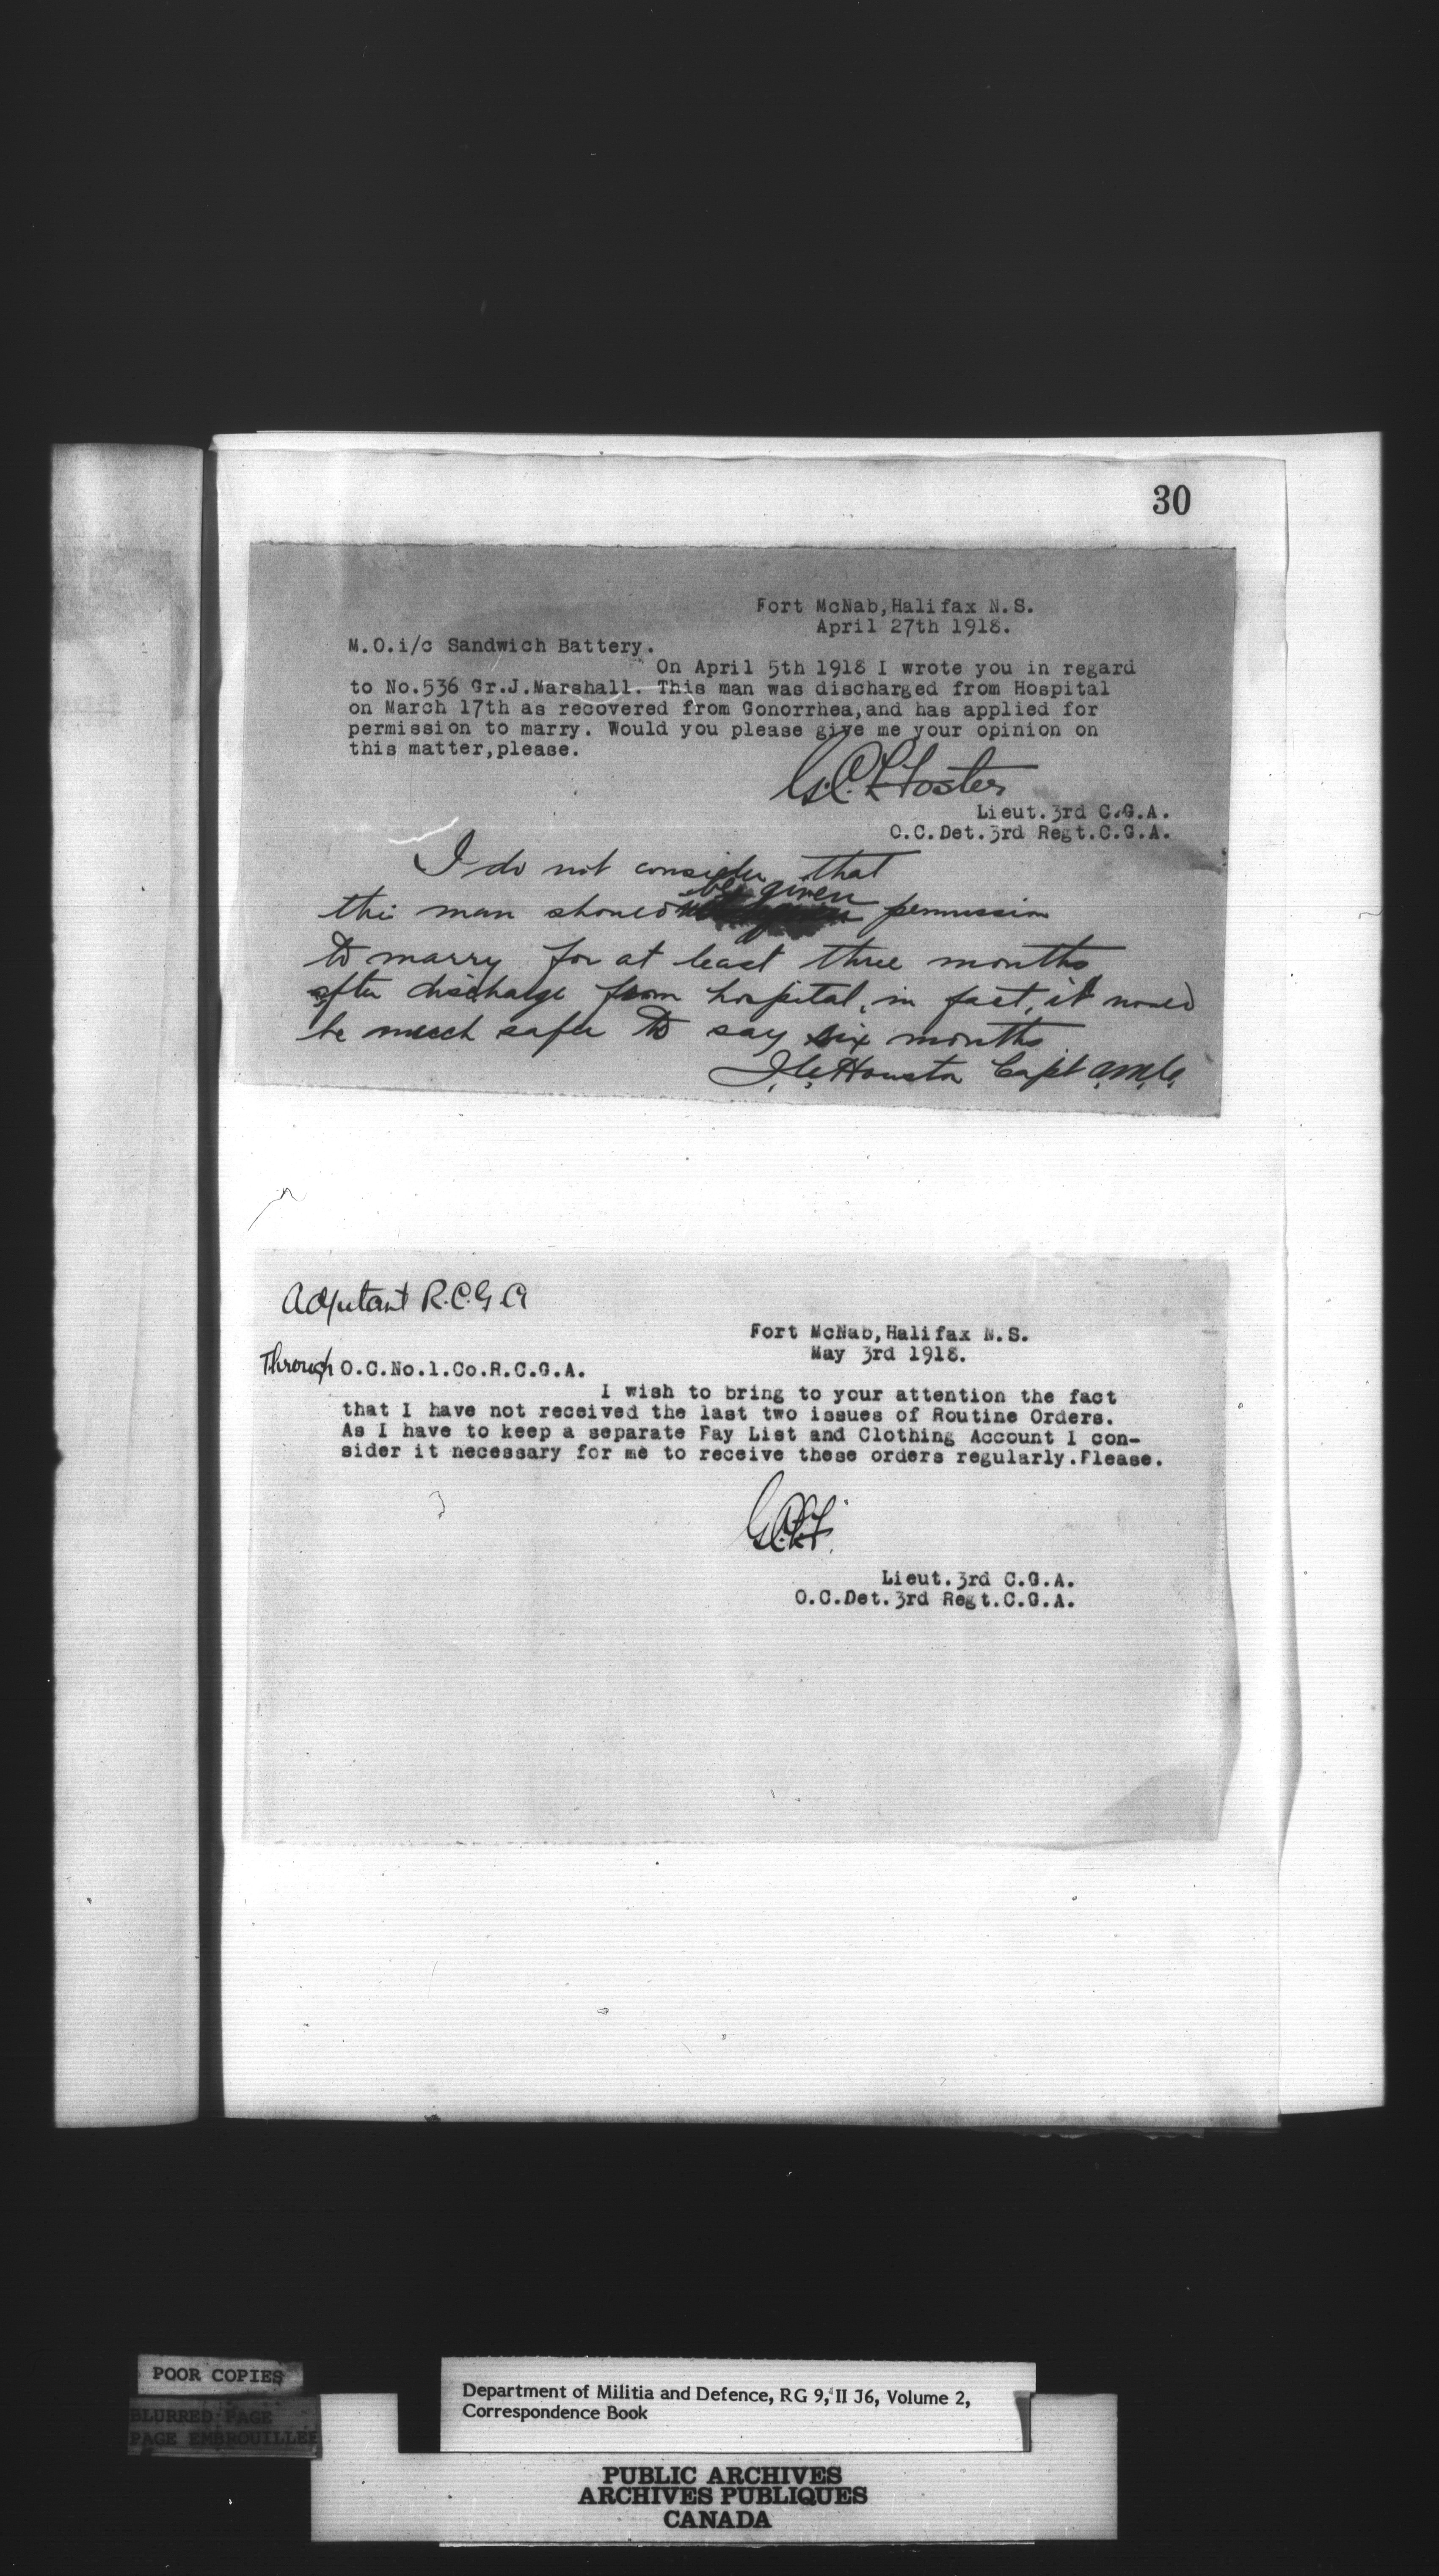 30
Fort McNab,Halifax N.S.
April 27th 1918.
M.O.i/c Sandwich Battery.
On April 5th 1918 I wrote you in regard
to No.536 Gr.J.Marshall. This man was discharged from Hospital
on March 17th as recovered from Gonorrhea,and has applied for
permission to marry. Would you please give me your opinion on
this matter,please.
G.C.L. Foster
Lieut.3rd C.G.A.
O.C.Det.3rd Regt.C.G.A.
I do not consider that
be given
this man should permission
to marry for at least three months
after discharge from hospital, in fact, it would
be much safer to say six months
Houston Capt A.M.C.
Adjutant R.C.G.A
Fort McNab,Halifax N.S.
May 3rd 1918.
Through O.C.No.1.Co.R.C.G.A.
I wish to bring to your attention the fact
that I have not received the last two issues of Routine Orders.
As I have to keep a separate Pay List and Clothing Account I con-
sider it necessary for me to receive these orders regularly.Please.
G.C.L.F.
Lieut.3rd C.G.A.
O.C.Det.3rd Regt.C.G.A.
POOR COPIES
BLURRED PAGE
PAGE EMBROUILLEE
Department of Militia and Defence, RG 9, II J6, Volume 2,
Correspondence Book
PUBLIC ARCHIVES
ARCHIVES PUBLIQUES
CANADA